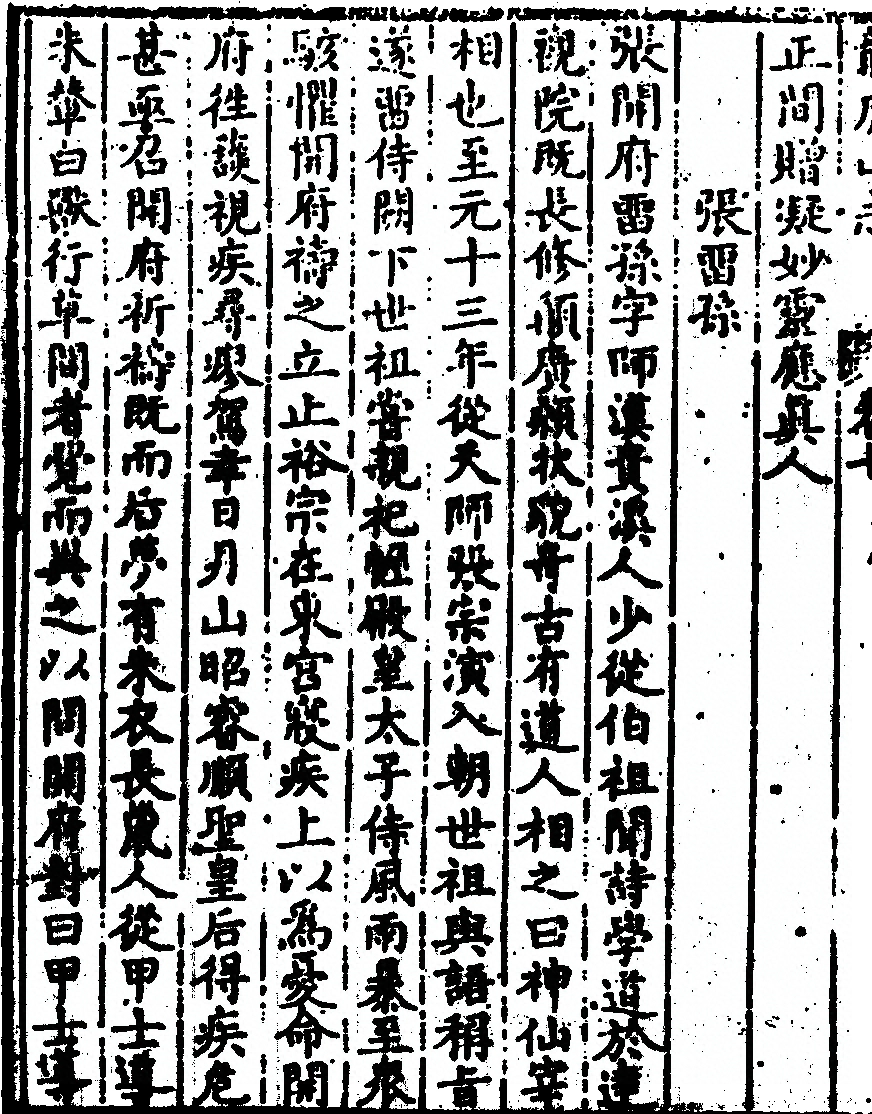 正間贈凝妙靈應眞人
張畱孫
張開府畱孫字師漢貴溪人少從伯祖聞詩學道於達
觀院既長修頎廣顙狀貌奇古有道人相之曰神仙宰
相也至元十三年從天師張宗演入朝世祖與語稱旨
遂畱侍闕下世祖嘗親祀幄殿皇太子侍風雨暴至衆
駭懼開府禱之立止裕宗在東宮寢疾上以爲憂命開
府徃護視疾尋瘳駕幸日月山昭睿順聖皇后得疾危
甚亟召開府祈禱既而后夢有朱衣長髯人從甲士導
朱輦白獸行草間者覺而異之以問開府對曰甲士導